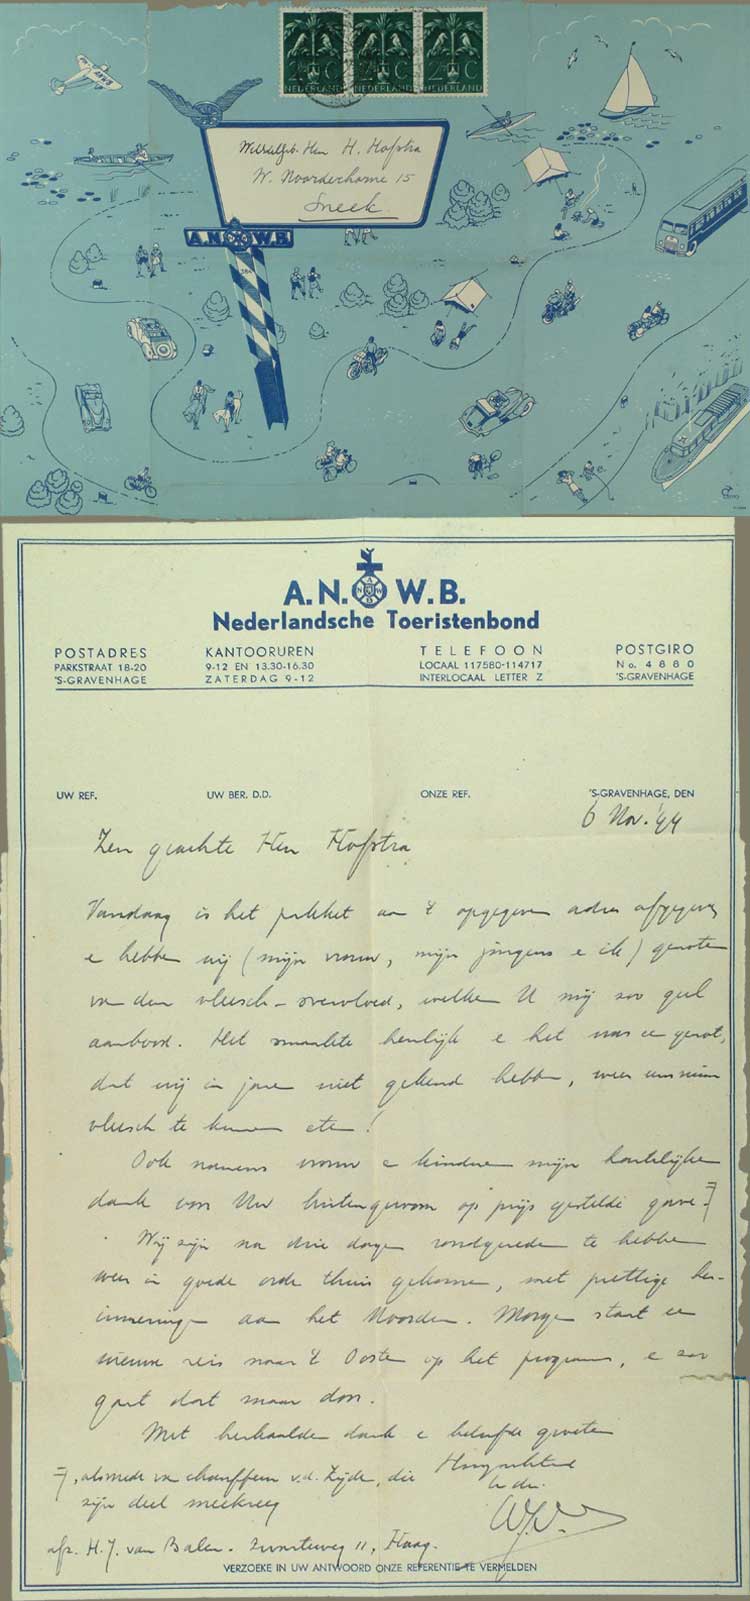 2½ C 2½ C 2½ C
NEDERLAND NEDERLAND NEDERLAND
WelEdelgeb. Heer H. Hofstra
W. Noorderhorne 15
Sneek
A.N.W.B.
A.N.W.B.
Nederlandsche Toeristenbond
POSTADRES
PARKSTRAAT 18-20
'S-GRAVENHAGE
KANTOORUREN
9-12 EN 13.30-16.30
ZATERDAG 9-12
TELEFOON
LOCAAL 117580-114717
INTERLOCAAL LETTER Z
POSTGIRO
No. 4880
'S-GRAVENHAGE
UW REF. UW BER. D.D. ONZE REF. 'S-GRAVENHAGE, DEN
6 Nov. '44
Zeer geachte Heer Hofstra
Vandaag is het pakket aan 't opgegeven adres afgegeven
en hebben wij (mijn vrouw, mijn jongens en ik) genoten
van den vleesch-overvloed, welken U mij zoo gul
aanbood. Het smaakte heerlijk en het was een genot,
dat wij in jaren niet gekend hebben, weer eens
vleesch te kunnen eten!
Ook namens vrouw en kinderen mijn hartelijke
dank voor Uw buitengewoon op prijs gestelde gave.
Wij zijn na drie dagen rondgereden te hebben
weer in goede orde thuis gekomen, met prettige her-
inneringen aan het Noorden. Morgen staat een
nieuwe reis naar 't Oosten op het programma, en zoo
gaat dat maar door.
Met herhaalden dank en beleefde groeten
Hoogachtend
, alsmede van chauffeur v.d. Zijde, die
zijn deel meekreeg
afz. H.J. van Balen. Zwarteweg 11, Haag.
VERZOEKE IN UW ANTWOORD ONZE REFERENTIE TE VERMELDEN